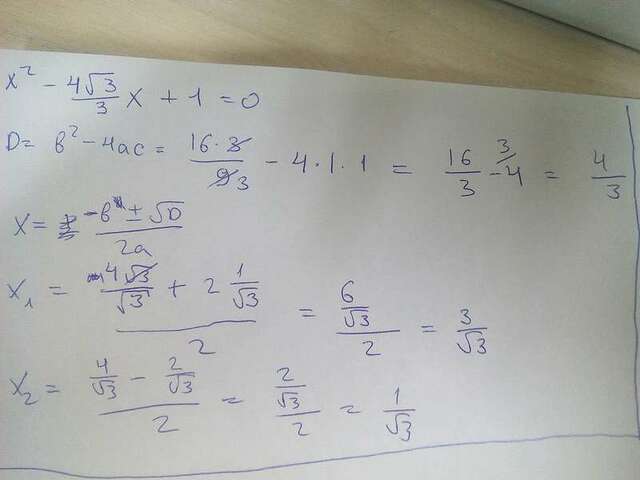 x² - 4√3/3 x + 1 = 0
D = b² - 4ac = 16·3/9 3 - 4·1·1 = 16/3 - 4 3/ = 4/3
x = -b ± √D / 2a
x₁ = (4√3/√3 + 2 1/√3) / 2 = (6/√3) / 2 = 3/√3
x₂ = (4/√3 - 2/√3) / 2 = (2/√3) / 2 = 1/√3